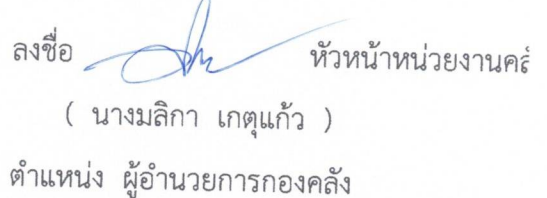 ลงชื่อ หัวหน้าหน่วยงานคลั
( นางมลิกา เกตุแก้ว )
ตำแหน่ง ผู้อำนวยการกองคลัง